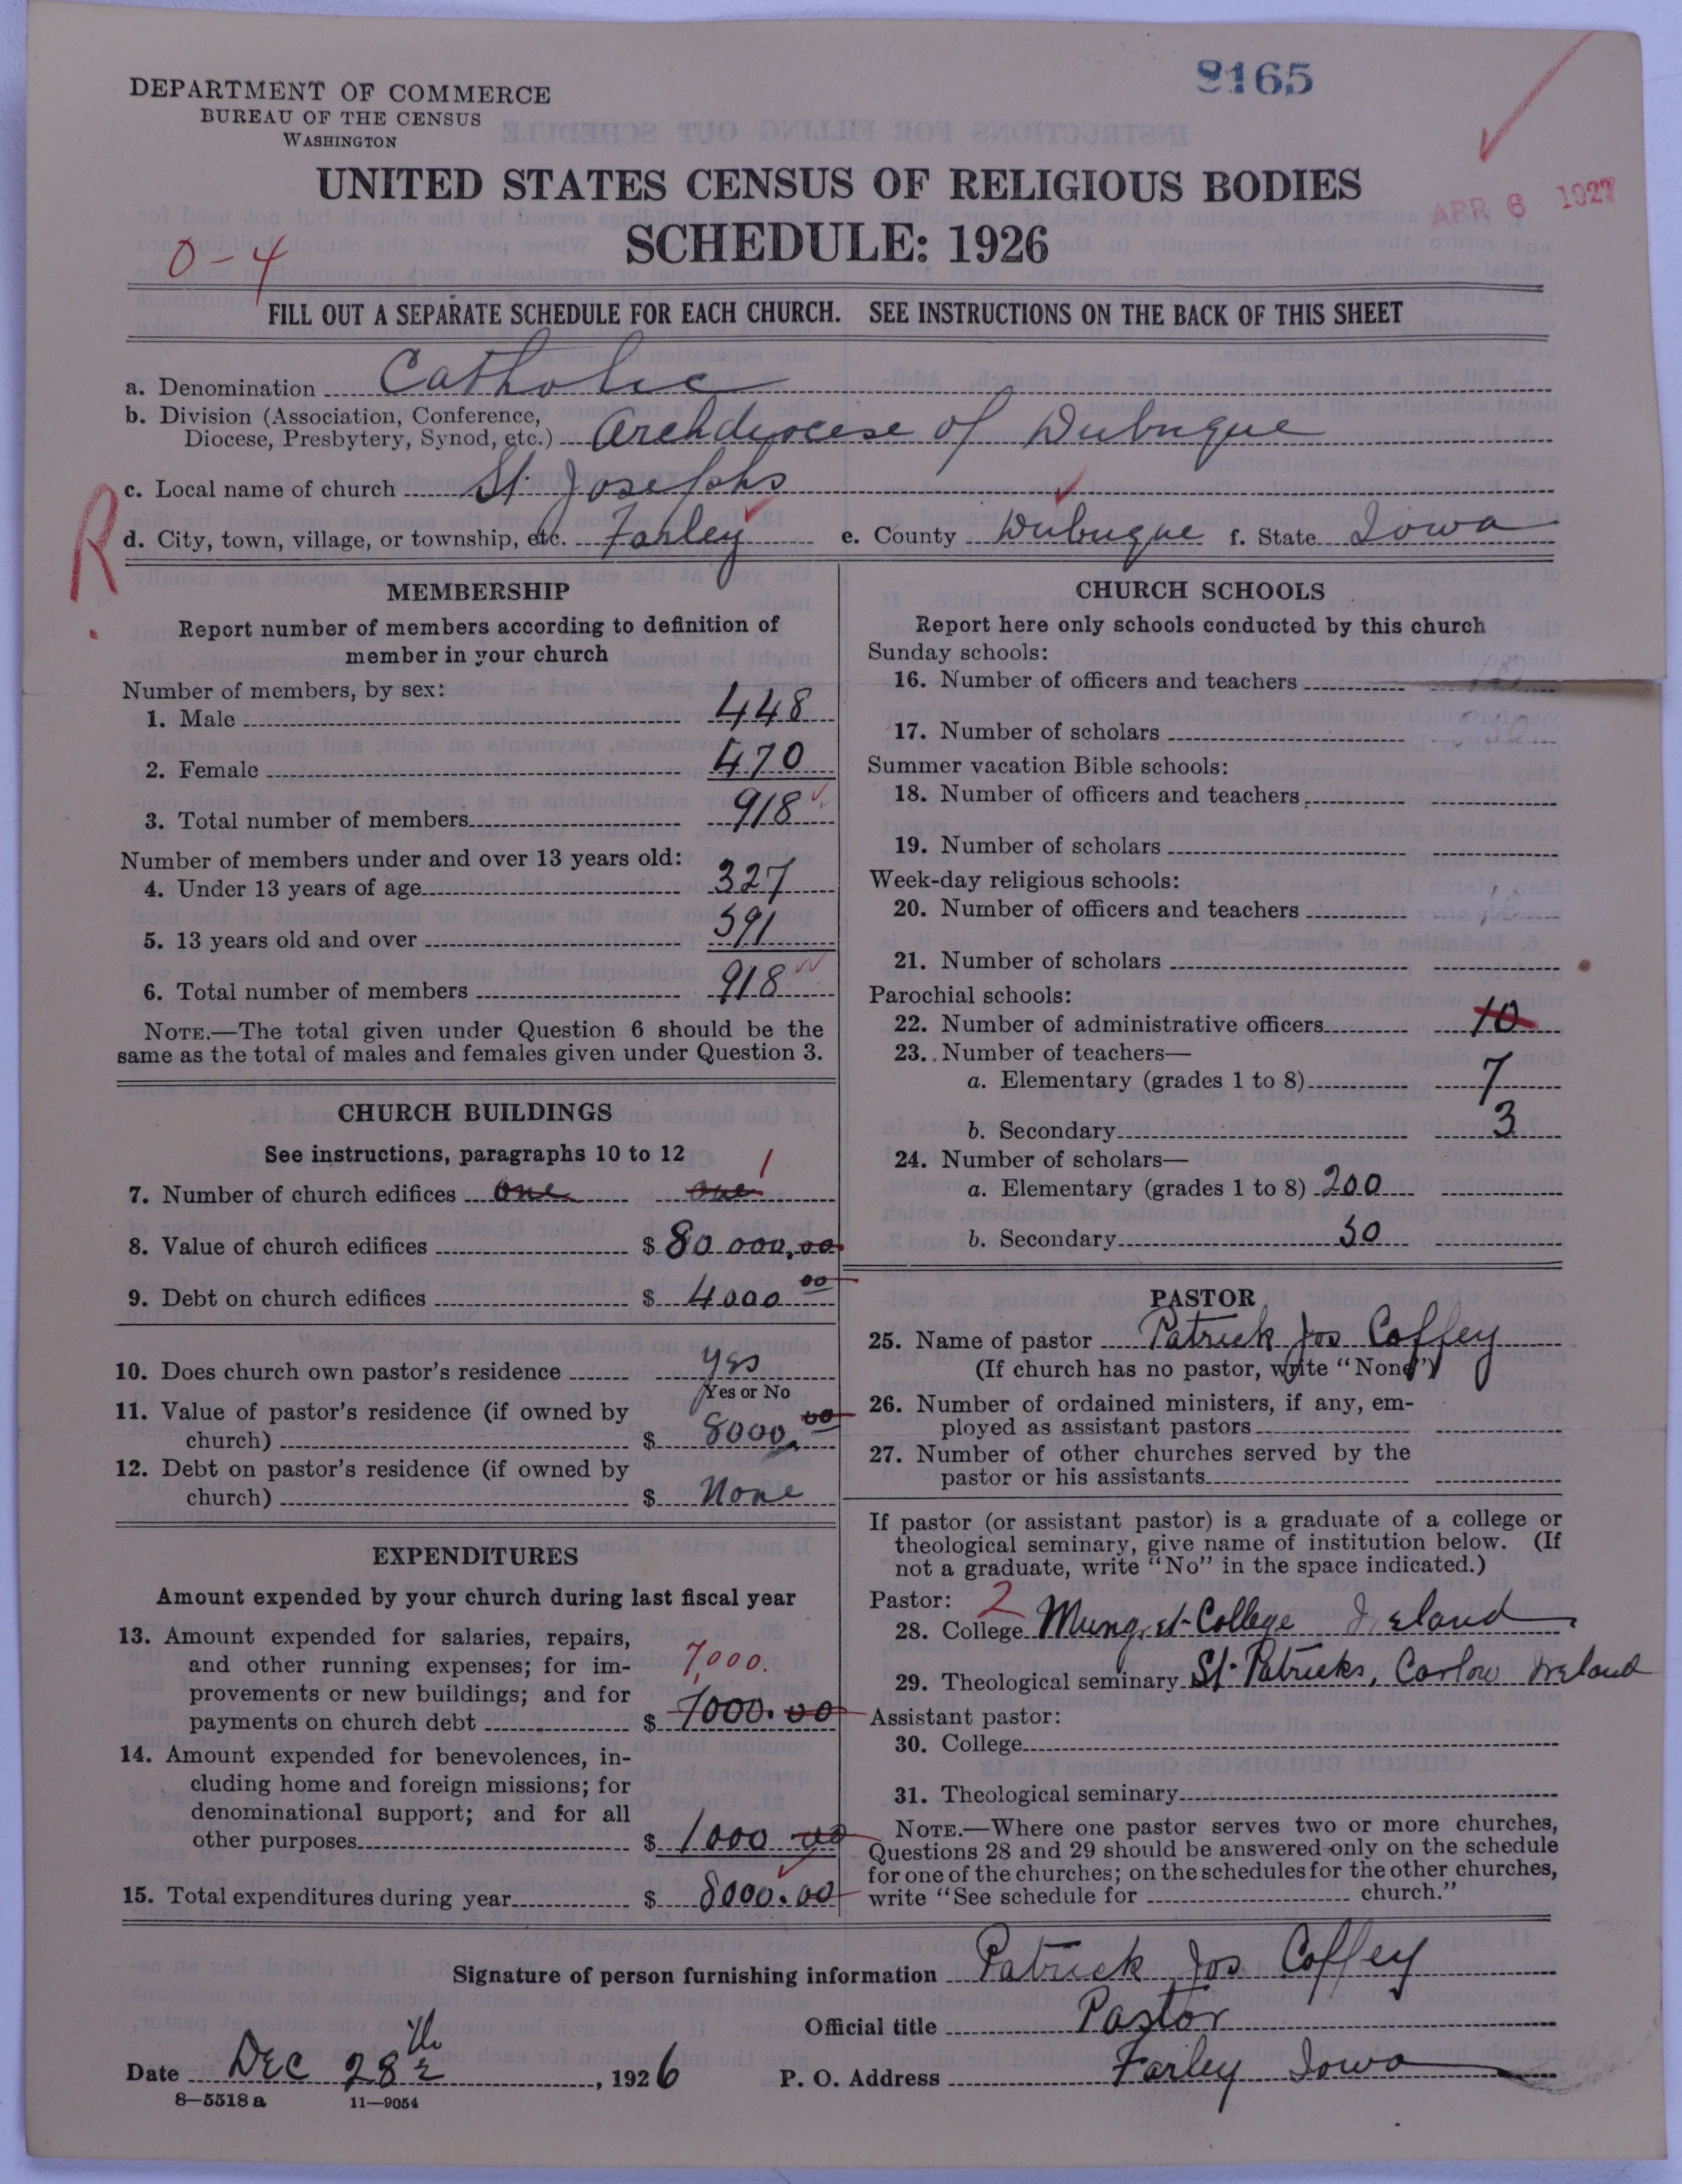 8165
DEPARTMENT OF COMMERCE
BUREAU OF THE CENSUS
WASHINGTON
UNITED STATES CENSUS OF RELIGIOUS BODIES
APR 6 1927
SCHEDULE: 1926
0-4
FILL OUT A SEPARATE SCHEDULE FOR EACH CHURCH. SEE INSTRUCTIONS ON THE BACK OF THIS SHEET
a. Denomination Catholic
b. Division (Association, Conference,
Diocese, Presbytery, Synod, etc.) Archdiocese of Dubuque
c. Local name of church St. Josephs
R
d. City, town, village, or township, etc. Farley e. County Dubuque f. State Iowa
MEMBERSHIP
Report number of members according to definition of
member in your church
Number of members, by sex:
1. Male 448
2. Female 470
3. Total number of members 918
Number of members under and over 13 years old:
4. Under 13 years of age 327
5. 13 years old and over 591
6. Total number of members 918
NOTE.—The total given under Question 6 should be the
same as the total of males and females given under Question 3.
CHURCH BUILDINGS
See instructions, paragraphs 10 to 12
7. Number of church edifices one one 1
8. Value of church edifices $ 80 000,00
9. Debt on church edifices $ 4000 00
10. Does church own pastor's residence yes
Yes or No
11. Value of pastor's residence (if owned by
church) $ 8000.00
12. Debt on pastor's residence (if owned by
church) $ None
EXPENDITURES
Amount expended by your church during last fiscal year
13. Amount expended for salaries, repairs,
and other running expenses; for im-
provements or new buildings; and for
payments on church debt $ 7000.00
7,000.
14. Amount expended for benevolences, in-
cluding home and foreign missions; for
denominational support; and for all
other purposes $ 1000 00
15. Total expenditures during year $ 8000.00
CHURCH SCHOOLS
Report here only schools conducted by this church
Sunday schools:
16. Number of officers and teachers
17. Number of scholars
Summer vacation Bible schools:
18. Number of officers and teachers
19. Number of scholars
Week-day religious schools:
20. Number of officers and teachers
21. Number of scholars
Parochial schools:
22. Number of administrative officers 10
23. Number of teachers—
a. Elementary (grades 1 to 8) 7
b. Secondary 3
24. Number of scholars—
a. Elementary (grades 1 to 8) 200
b. Secondary 50
PASTOR
25. Name of pastor Patrick Jos Coffey
(If church has no pastor, write "None")
26. Number of ordained ministers, if any, em-
ployed as assistant pastors
27. Number of other churches served by the
pastor or his assistants
If pastor (or assistant pastor) is a graduate of a college or
theological seminary, give name of institution below. (If
not a graduate, write "No" in the space indicated.)
Pastor: 2
28. College Mungret-College Ireland
29. Theological seminary St. Patricks, Carlow Ireland
Assistant pastor:
30. College
31. Theological seminary
NOTE.—Where one pastor serves two or more churches,
Questions 28 and 29 should be answered only on the schedule
for one of the churches; on the schedules for the other churches,
write "See schedule for church."
Signature of person furnishing information Patrick Jos Coffey
Official title Pastor
Date Dec 28th, 1926 P. O. Address Farley Iowa
8—5518 a 11—9054